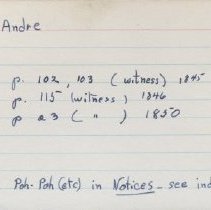 Andre
p. 102, 103 (witness) 1845
p. 115 (witness) 1846
p 23 ( " ) 1850
Poh-Poh (etc) in Notices - see ind